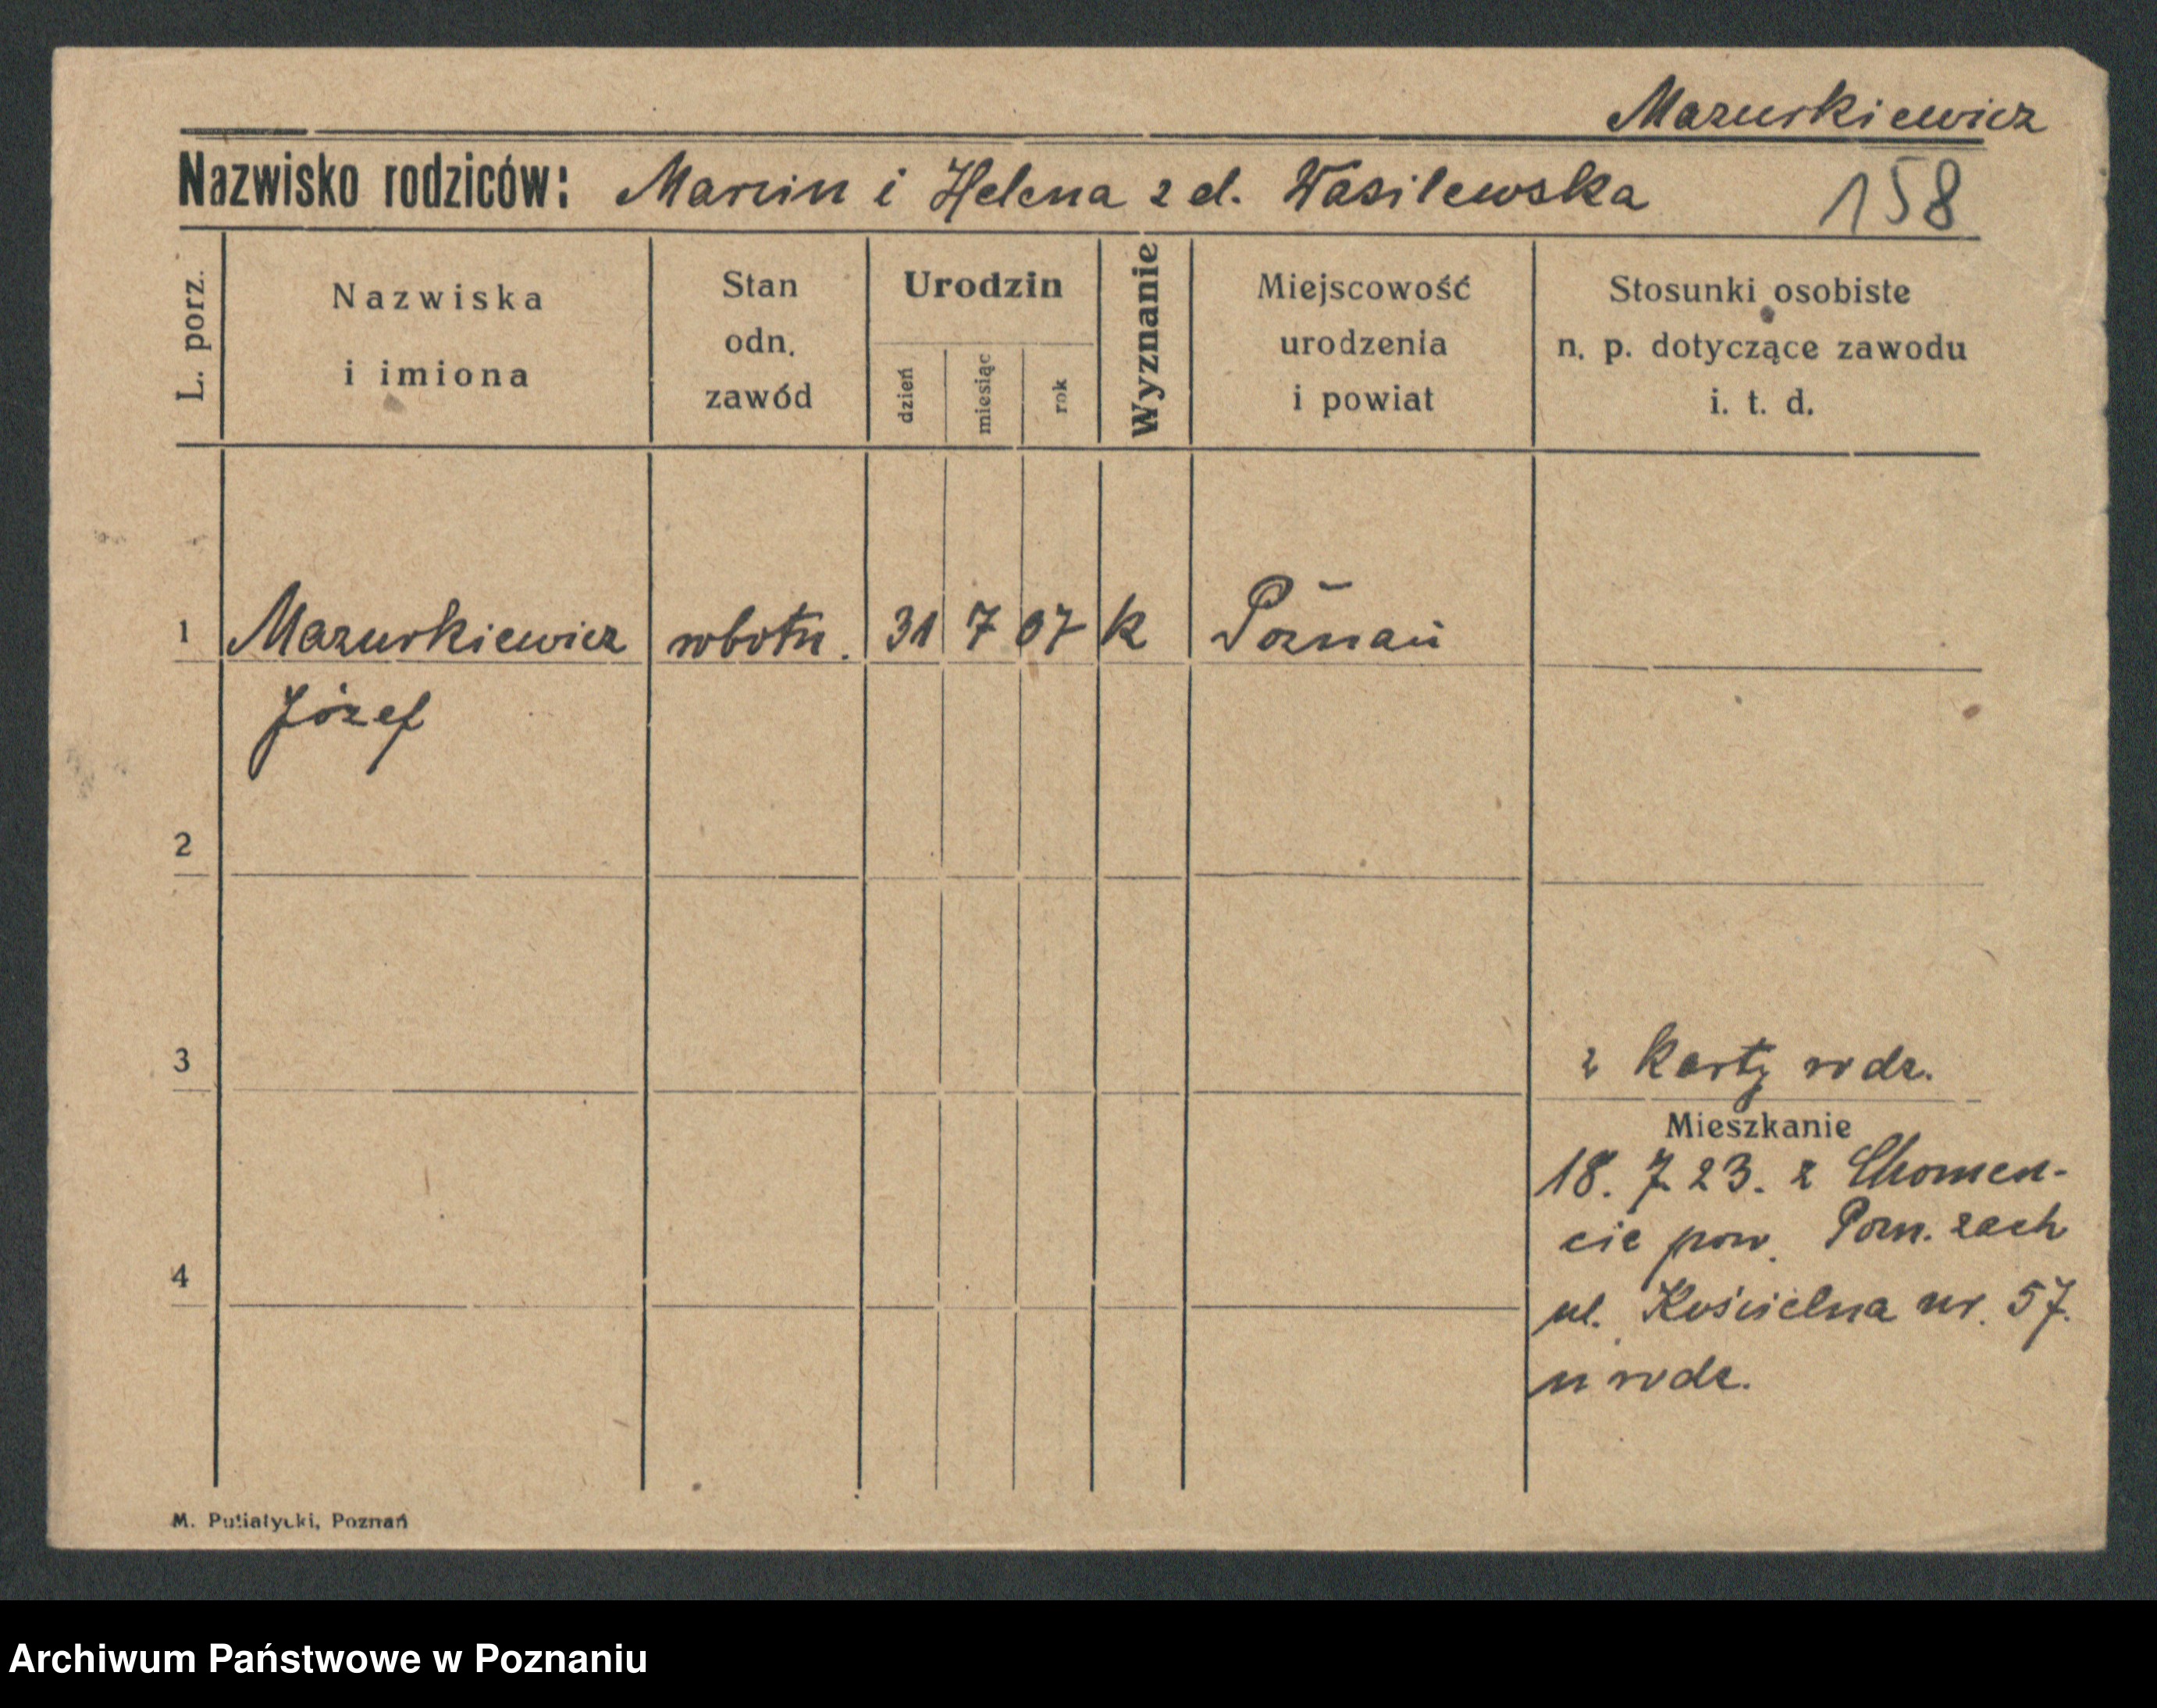 Mazurkiewicz
Nazwisko rodziców: Marcin i Helena z d. Wasilewska 158
L. porz.
Nazwiska
i imiona
Stan
odn.
zawód
Urodzin
dzień
miesiąc
rok
Wyznanie
Miejscowość
urodzenia
i powiat
Stosunki osobiste
n. p. dotyczące zawodu
i. t. d.
1 Mazurkiewicz robotn. 31 7 07 k Poznań
Józef
2
3
z karty rodz.
Mieszkanie
18. 7 23. z Chomen-
cic pow. Pozn. zach
4
ul. Kościelna nr. 57.
u rodz.
M. Putiatycki, Poznań
Archiwum Państwowe w Poznaniu